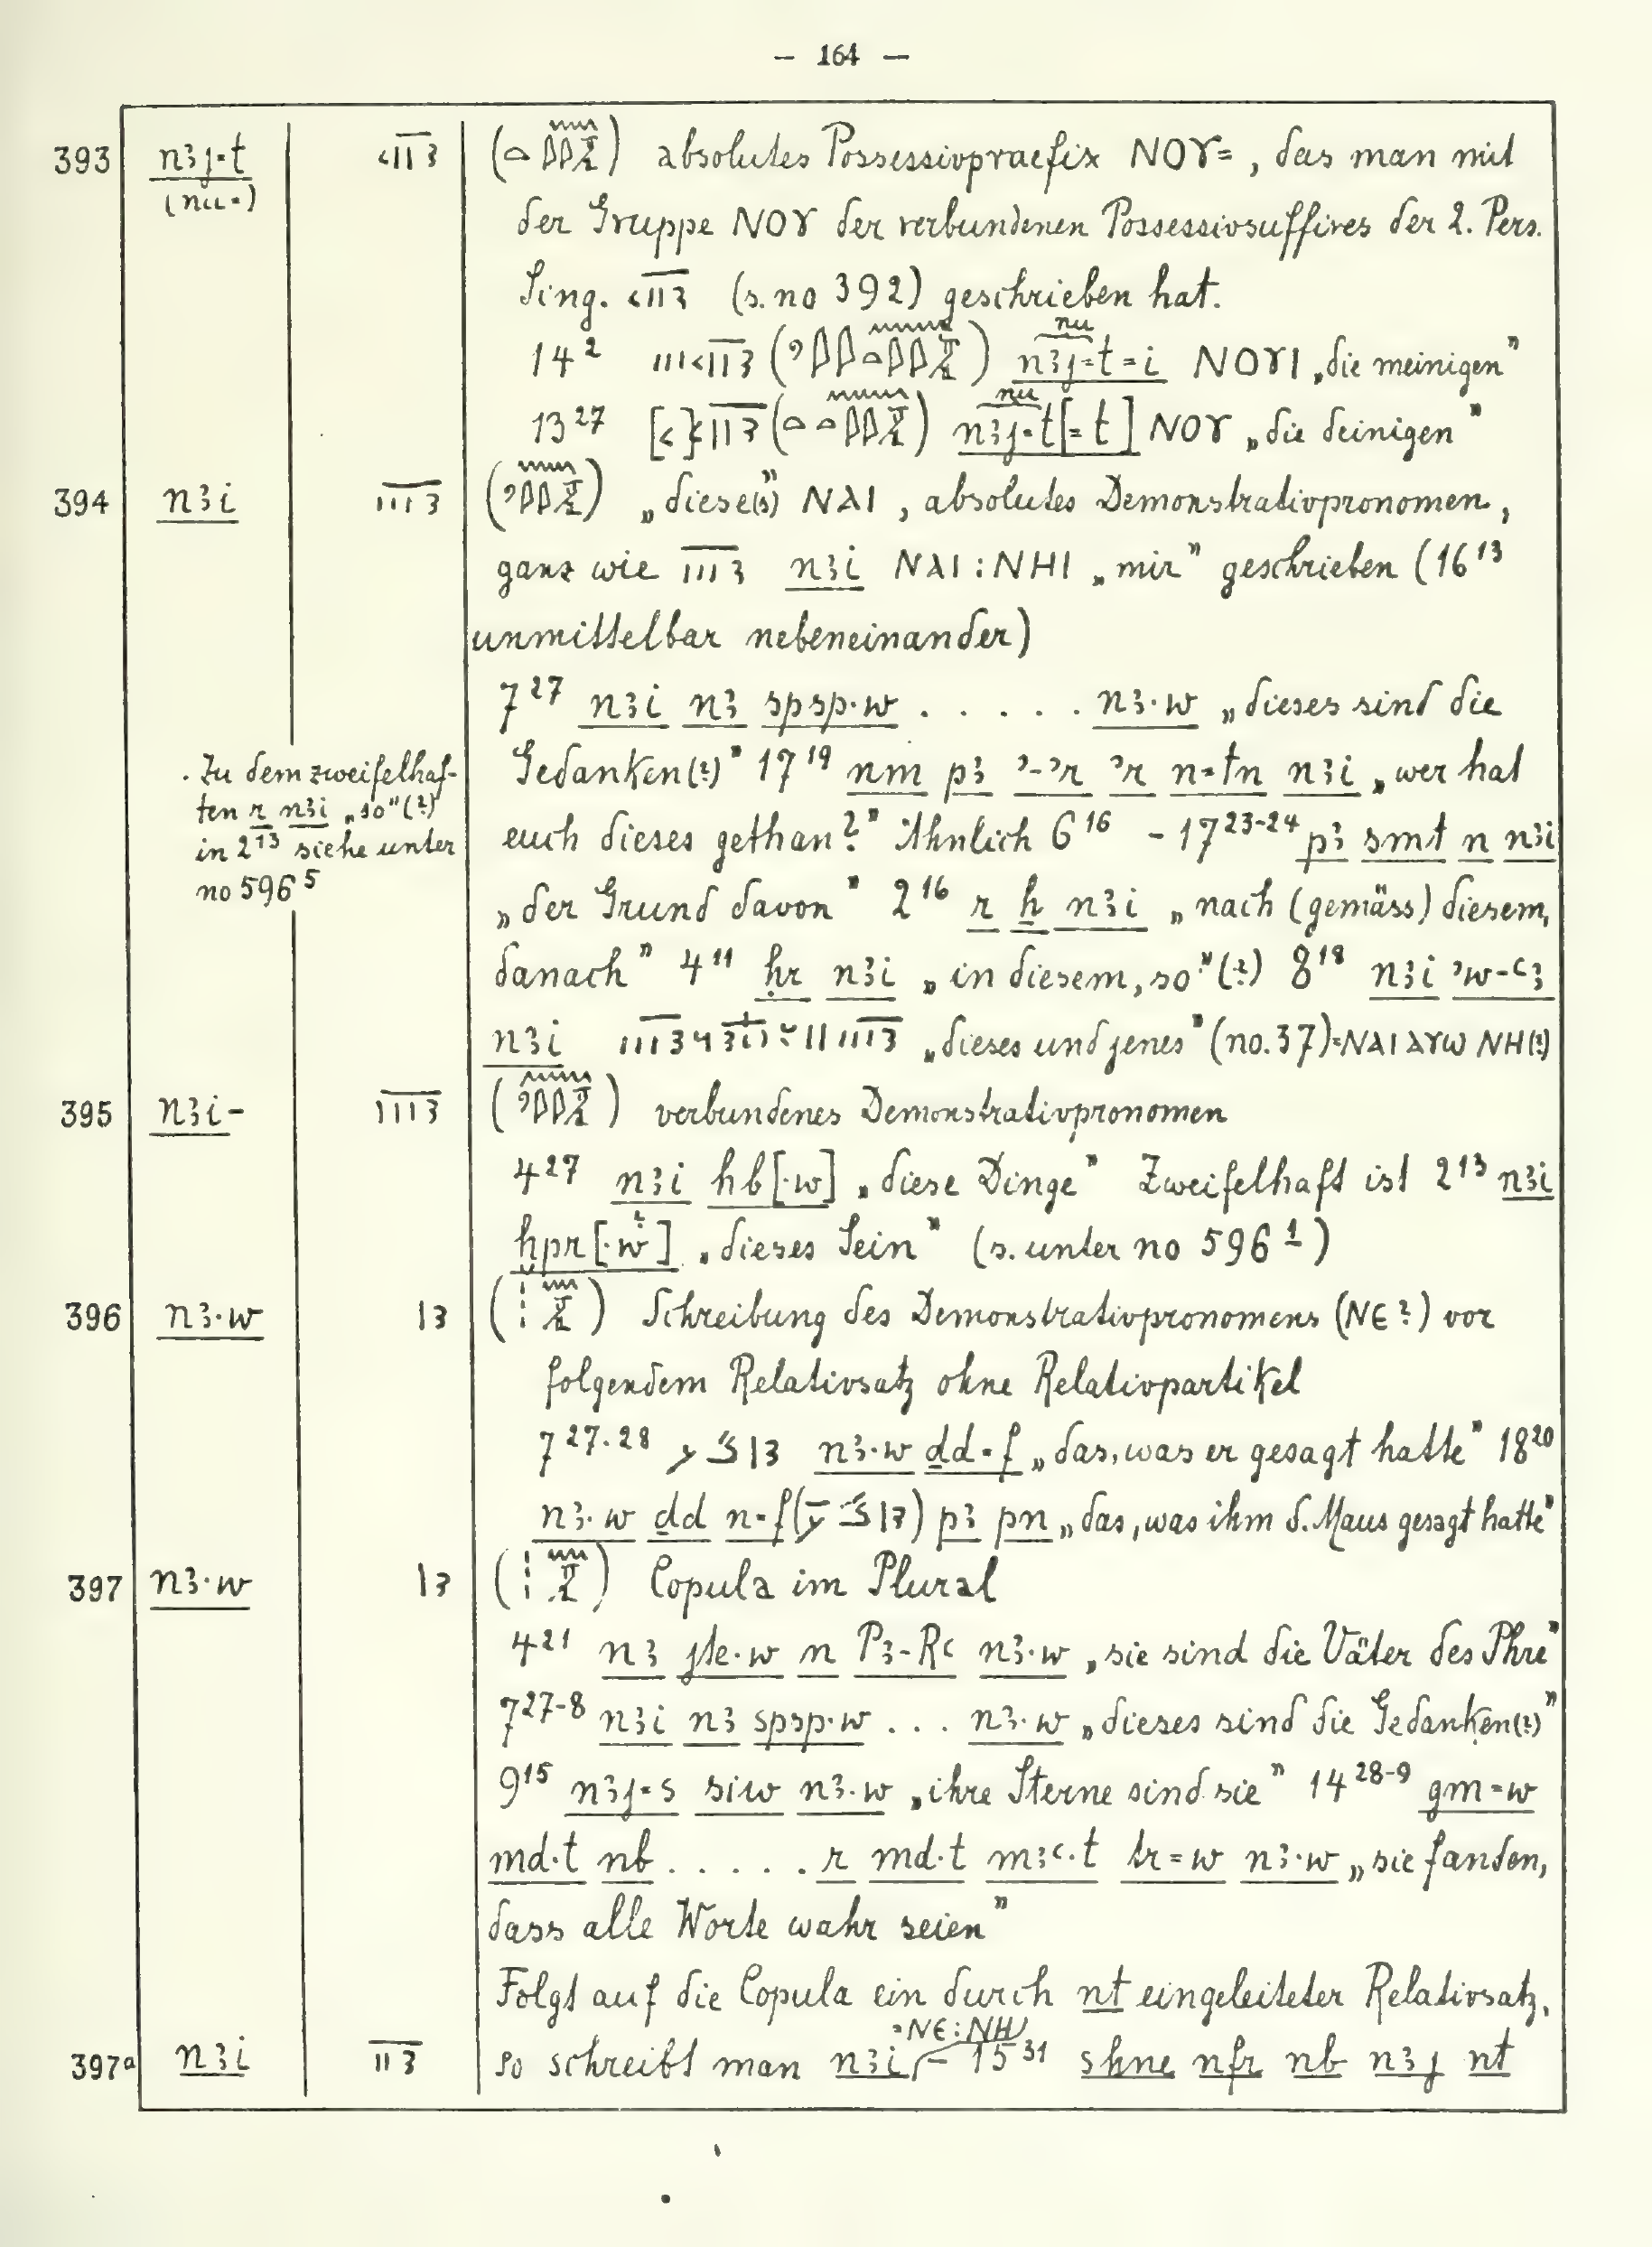 — 164 —
393 nꜣj·t (absolutes Possessivpraefix ΝΟΥ=, das man mit
(nu=)
der Gruppe ΝΟΥ der verbundenen Possessivsuffixes der 2. Pers.
Sing. (s. no 392) geschrieben hat.
nu
14² nꜣj=t=i ΝΟΥΙ „die meinigen"
nu
13²⁷ nꜣj·t[=t] ΝΟΥ „die deinigen"
394 nꜣi „diese(s)" ΝΑΙ, absolutes Demonstrativpronomen,
ganz wie nꜣi ΝΑΙ : ΝΗΙ „mir" geschrieben (16¹³
unmittelbar nebeneinander)
7²⁷ nꜣi nꜣ spsp·w . . . . . nꜣ·w „dieses sind die
Gedanken(?)" 17¹⁹ nm pꜣ ʾ-ʾr ʾr n=tn nꜣi „wer hat
euch dieses gethan?" Ähnlich 6¹⁶ - 17²³⁻²⁴ pꜣ smt n nꜣi
„der Grund davon" 2¹⁶ r ẖ nꜣi „nach (gemäss) diesem,
danach" 4¹¹ ḥr nꜣi „in diesem, so"(?) 8¹⁸ nꜣi ʾw-ʿꜣ
nꜣi „dieses und jenes" (no. 37)=ΝΑΙ ΑΥω ΝΗ(?)
. Zu dem zweifelhaf-
ten r nꜣi „so"(?)
in 2¹³ siehe unter
no 596⁵
395 nꜣi- verbundenes Demonstrativpronomen
4²⁷ nꜣi hb[·w] „diese Dinge" Zweifelhaft ist 2¹³ nꜣi
ḫpr[·w?] „dieses Sein" (s. unter no 596¹)
396 nꜣ·w Schreibung des Demonstrativpronomens (ΝЄ?) vor
folgendem Relativsatz ohne Relativpartikel
7²⁷·²⁸ nꜣ·w ḏd=f „das, was er gesagt hatte" 18²⁰
nꜣ·w ḏd n=f pꜣ pn „das, was ihm d. Maus gesagt hatte"
397 nꜣ·w Copula im Plural
4²¹ nꜣ jte·w n Pꜣ-Rʿ nꜣ·w „sie sind die Väter des Phre"
7²⁷⁻⁸ nꜣi nꜣ spsp·w . . . nꜣ·w „dieses sind die Gedanken(?)"
9¹⁵ nꜣj=s siw nꜣ·w „ihre Sterne sind sie" 14²⁸⁻⁹ gm=w
md·t nb . . . . . r md·t mꜣʿ·t tr=w nꜣ·w „sie fanden,
dass alle Worte wahr seien"
Folgt auf die Copula ein durch nt eingeleiteter Relativsatz,
=ΝЄ:ΝΗ
397ᵃ nꜣi so schreibt man nꜣi - 15³¹ sḥne nfr nb nꜣj nt